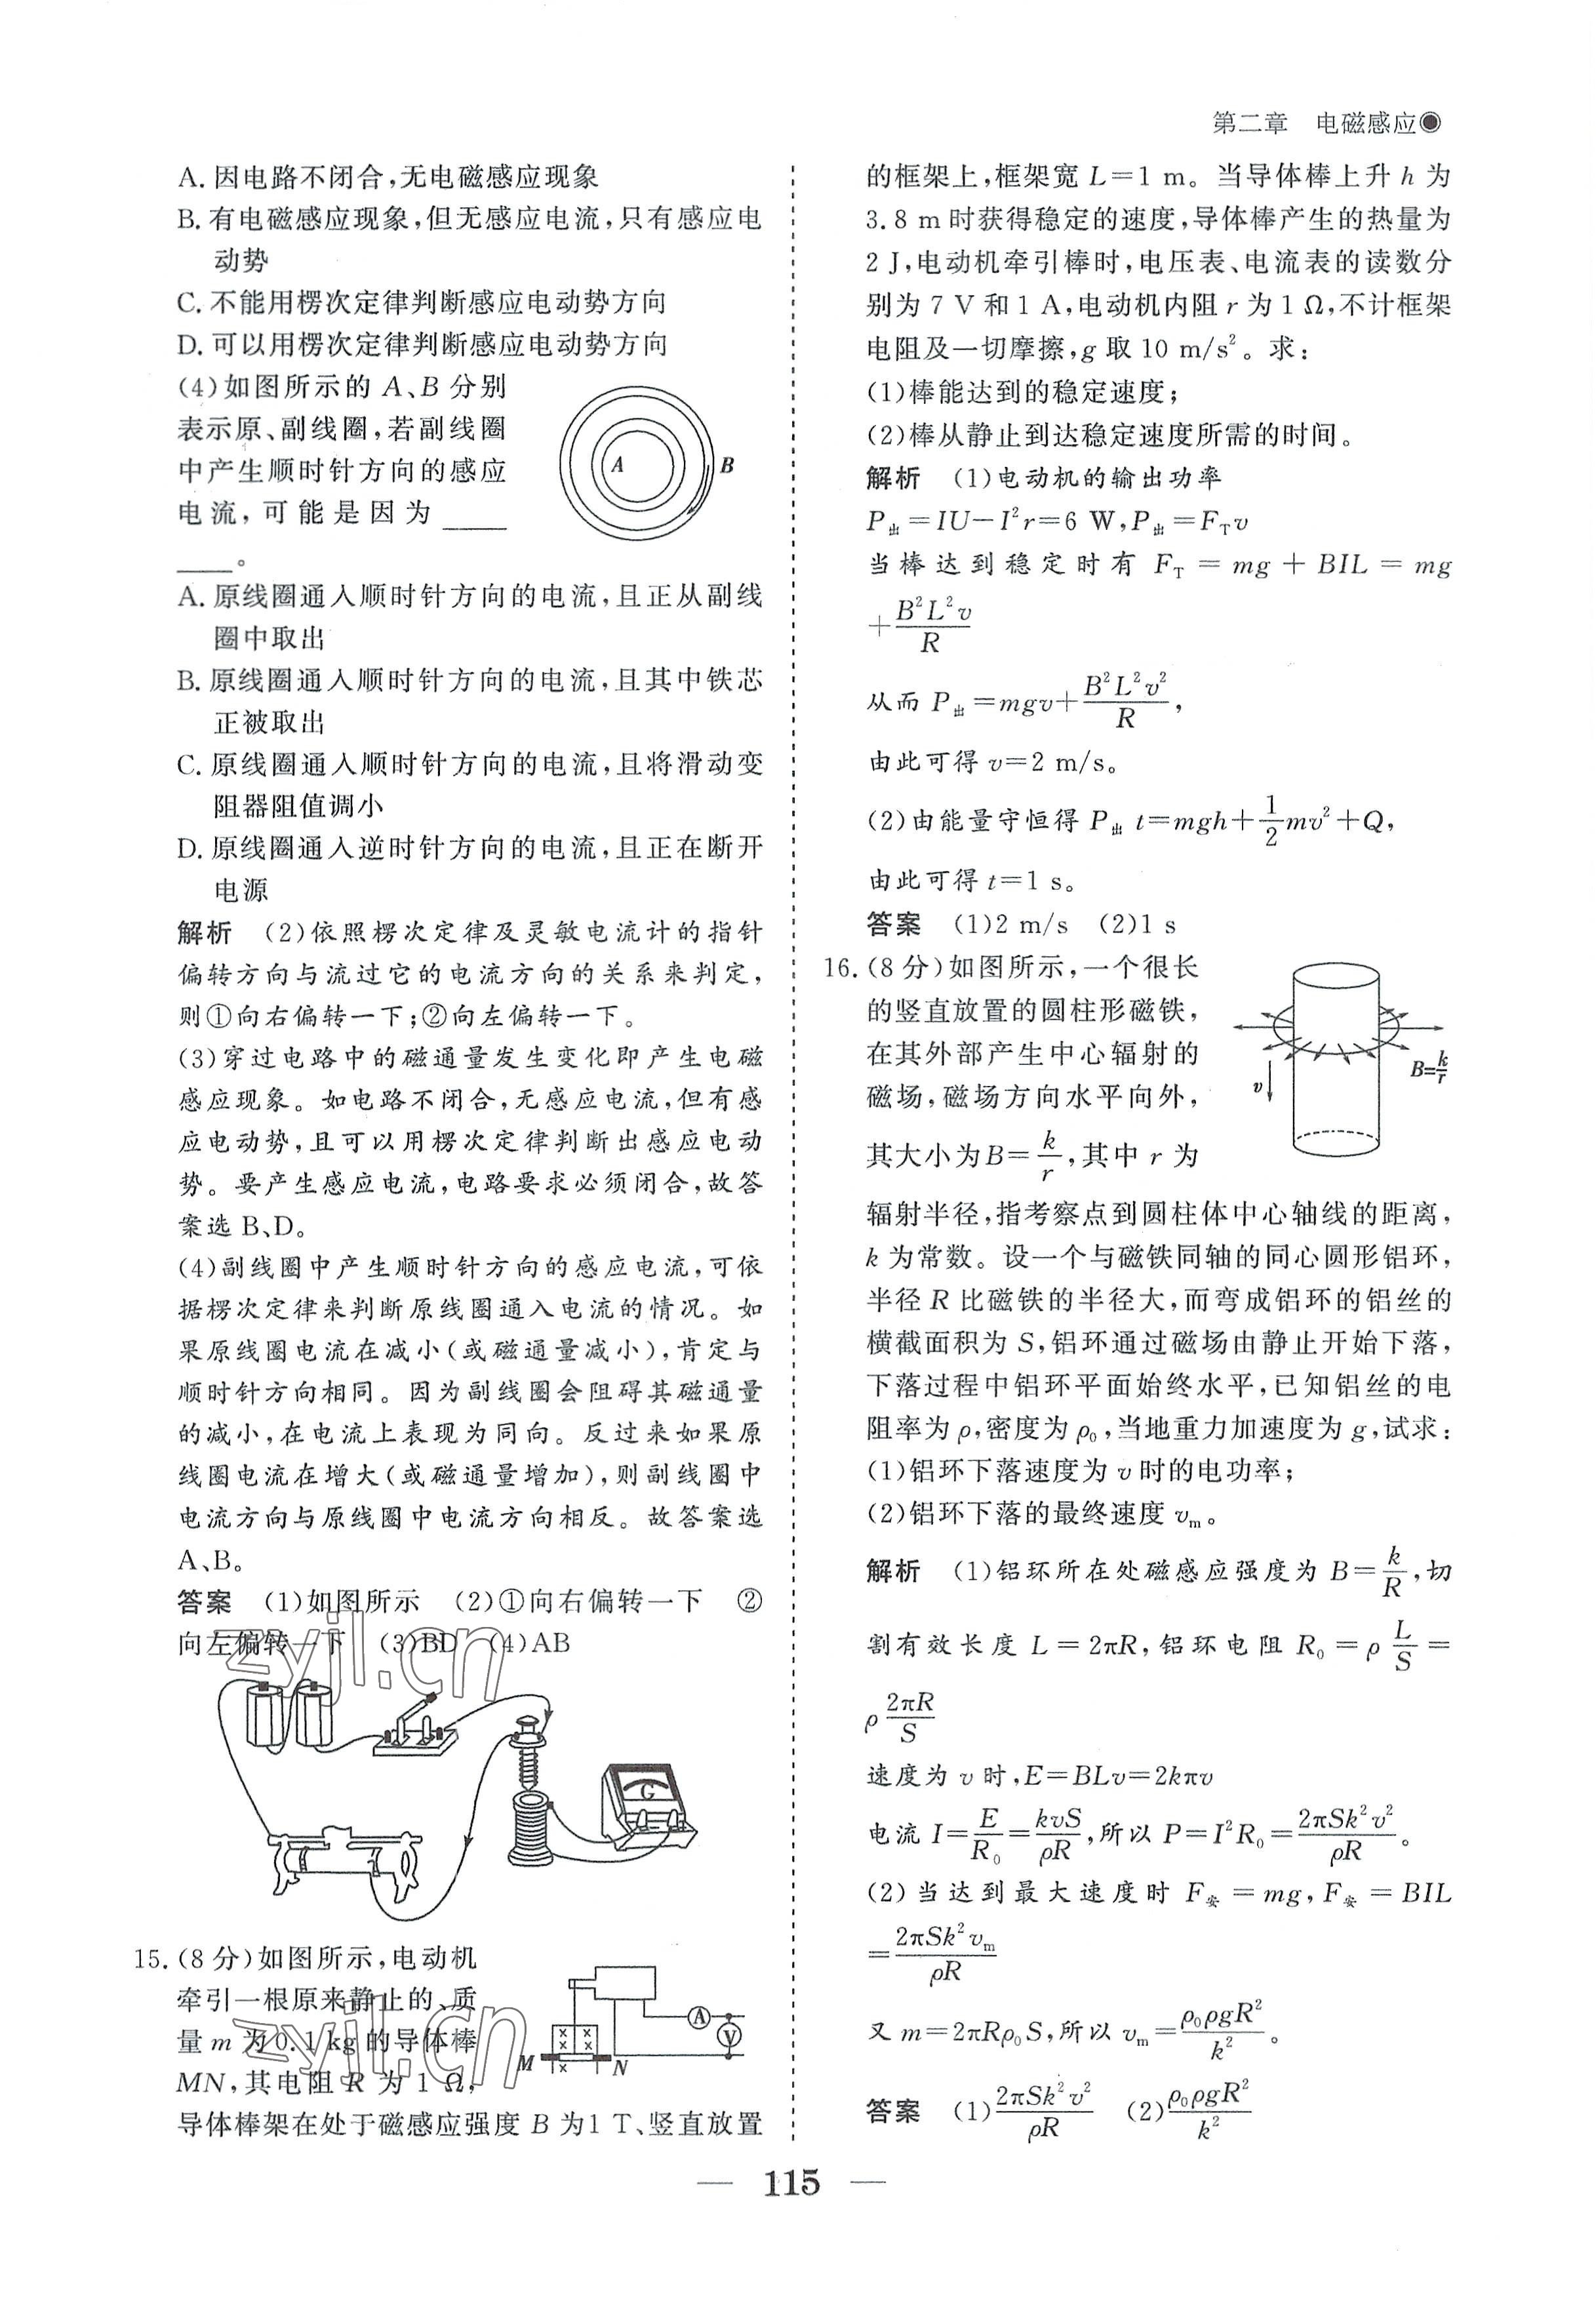 第二章　电磁感应
A. 因电路不闭合,无电磁感应现象
B. 有电磁感应现象,但无感应电流,只有感应电
动势
C. 不能用楞次定律判断感应电动势方向
D. 可以用楞次定律判断感应电动势方向
(4)如图所示的 A、B 分别
表示原、副线圈,若副线圈
中产生顺时针方向的感应
电流,可能是因为____
____。
A
B
A. 原线圈通入顺时针方向的电流,且正从副线
圈中取出
B. 原线圈通入顺时针方向的电流,且其中铁芯
正被取出
C. 原线圈通入顺时针方向的电流,且将滑动变
阻器阻值调小
D. 原线圈通入逆时针方向的电流,且正在断开
电源
解析　(2)依照楞次定律及灵敏电流计的指针
偏转方向与流过它的电流方向的关系来判定,
则①向右偏转一下;②向左偏转一下。
(3)穿过电路中的磁通量发生变化即产生电磁
感应现象。如电路不闭合,无感应电流,但有感
应电动势,且可以用楞次定律判断出感应电动
势。要产生感应电流,电路要求必须闭合,故答
案选 B、D。
(4)副线圈中产生顺时针方向的感应电流,可依
据楞次定律来判断原线圈通入电流的情况。如
果原线圈电流在减小(或磁通量减小),肯定与
顺时针方向相同。因为副线圈会阻碍其磁通量
的减小,在电流上表现为同向。反过来如果原
线圈电流在增大(或磁通量增加),则副线圈中
电流方向与原线圈中电流方向相反。故答案选
A、B。
答案　(1)如图所示　(2)①向右偏转一下　②
向左偏转一下　(3)BD　(4)AB
zyjl.cn
G
15. (8 分)如图所示,电动机
牵引一根原来静止的、质
量 m 为 0.1 kg 的导体棒
MN,其电阻 R 为 1 Ω,
导体棒架在处于磁感应强度 B 为1 T、竖直放置
A
V
M
N
zyjl.cn
的框架上,框架宽 L=1 m。当导体棒上升 h 为
3.8 m 时获得稳定的速度,导体棒产生的热量为
2 J,电动机牵引棒时,电压表、电流表的读数分
别为 7 V 和 1 A,电动机内阻 r 为 1 Ω,不计框架
电阻及一切摩擦,g 取 10 m/s²。求:
(1)棒能达到的稳定速度;
(2)棒从静止到达稳定速度所需的时间。
解析　(1)电动机的输出功率
P出=IU-I²r=6 W,P出=F_T v
当棒达到稳定时有 F_T = mg + BIL = mg
+B²L²v/R
从而 P出=mgv+B²L²v²/R,
由此可得 v=2 m/s。
(2)由能量守恒得 P出 t=mgh+1/2mv²+Q,
由此可得 t=1 s。
答案　(1)2 m/s　(2)1 s
16. (8 分)如图所示,一个很长
的竖直放置的圆柱形磁铁,
在其外部产生中心辐射的
磁场,磁场方向水平向外,
其大小为B=k/r,其中 r 为
v
B=k/r
辐射半径,指考察点到圆柱体中心轴线的距离,
k 为常数。设一个与磁铁同轴的同心圆形铝环,
半径 R 比磁铁的半径大,而弯成铝环的铝丝的
横截面积为 S,铝环通过磁场由静止开始下落,
下落过程中铝环平面始终水平,已知铝丝的电
阻率为 ρ,密度为 ρ₀,当地重力加速度为 g,试求:
(1)铝环下落速度为 v 时的电功率;
(2)铝环下落的最终速度 vₘ。
解析　(1)铝环所在处磁感应强度为 B=k/R,切
割有效长度 L = 2πR,铝环电阻 R₀ = ρ L/S =
ρ 2πR/S
速度为 v 时,E=BLv=2kπv
电流 I=E/R₀=kvS/ρR,所以 P=I²R₀=2πSk²v²/ρR。
(2)当达到最大速度时 F安 = mg,F安 = BIL
=2πSk²vₘ/ρR
又 m=2πRρ₀S,所以 vₘ=ρ₀ρgR²/k²。
答案　(1)2πSk²v²/ρR　(2)ρ₀ρgR²/k²
— 115 —